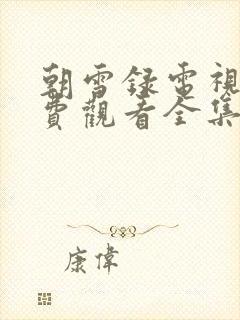 朝雪録電視
費觀看全集
康偉